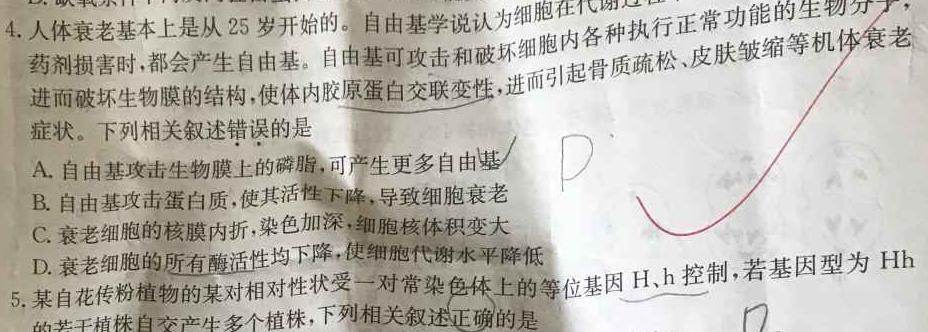 4. 人体衰老基本上是从 25 岁开始的。自由基学说认为细胞在代谢过
药剂损害时,都会产生自由基。自由基可攻击和破坏细胞内各种执行正常功能的生物分子,
进而破坏生物膜的结构,使体内胶原蛋白交联变性,进而引起骨质疏松、皮肤皱缩等机体衰老
症状。下列相关叙述错误的是
A. 自由基攻击生物膜上的磷脂,可产生更多自由基
D
B. 自由基攻击蛋白质,使其活性下降,导致细胞衰老
C. 衰老细胞的核膜内折,染色加深,细胞核体积变大
D. 衰老细胞的所有酶活性均下降,使细胞代谢水平降低
5. 某自花传粉植物的某对相对性状受一对常染色体上的等位基因 H、h 控制,若基因型为 Hh
的若干植株自交产生多个植株,下列相关叙述正确的是